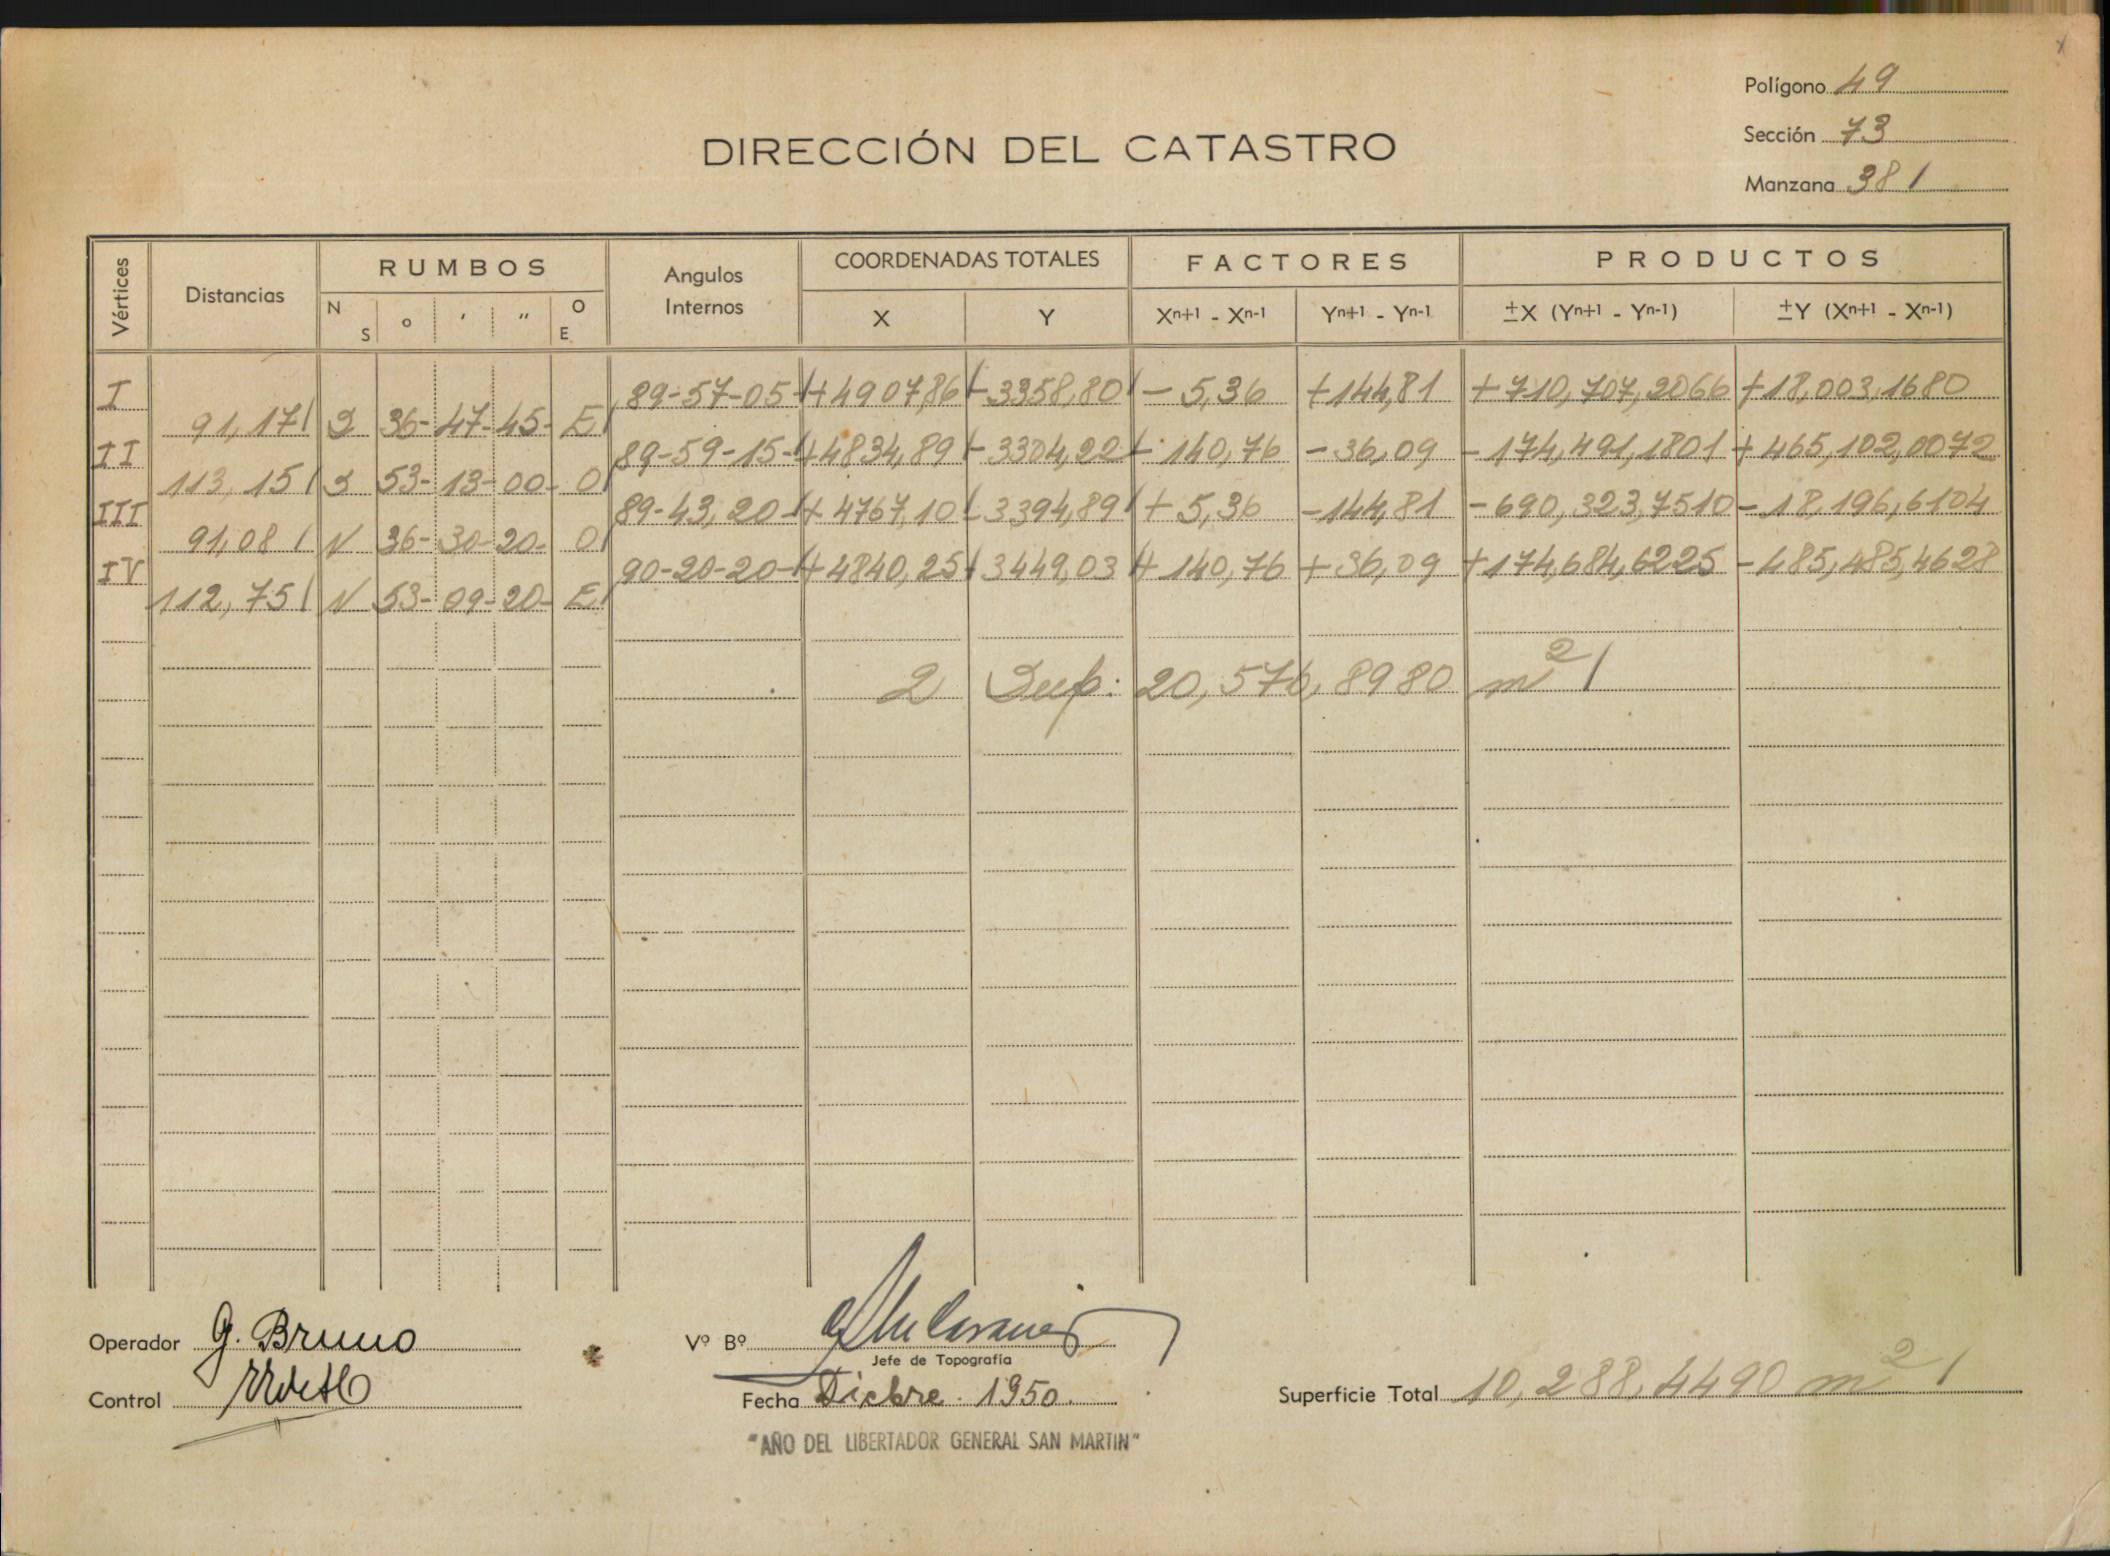 Polígono 49
Sección 73
Manzana 381
DIRECCIÓN DEL CATASTRO
Vértices Distancias RUMBOS Angulos Internos COORDENADAS TOTALES FACTORES PRODUCTOS
N S o ' " O E X Y Xⁿ⁺¹ - Xⁿ⁻¹ Yⁿ⁺¹ - Yⁿ⁻¹ ±X (Yⁿ⁺¹ - Yⁿ⁻¹) ±Y (Xⁿ⁺¹ - Xⁿ⁻¹)
I 89-57-05- +4907,86 -3358,80 - 5,36 +144,81 +710,707,2066 +18,003,1680
91,17 S 36- 47- 45- E
II 89-59-15- +4834,89 -3304,22 - 140,76 - 36,09 -174,491,1801 +465,102,0072
113,15 S 53- 13- 00- O
III 89-43,20- +4767,10 -3394,89 + 5,36 -144,81 -690,323,7510 -18,196,6104
91,08 N 36- 30- 20- O
IV 90-20-20- +4840,25 -3449,03 + 140,76 +36,09 +174,684,6225 -485,485,4628
112,75 N 53- 09- 20- E
2 Sup: 20,576,8980 m²
Operador G. Bruno
Vº Bº
Jefe de Topografía
Control
Fecha Dicbre. 1950.
Superficie Total 10,288,4490 m²
"AÑO DEL LIBERTADOR GENERAL SAN MARTIN"